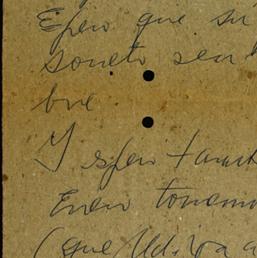 Espero que su
soneto sea
bre
Y espero tamb
Enero tomamo
(que Ud. va a